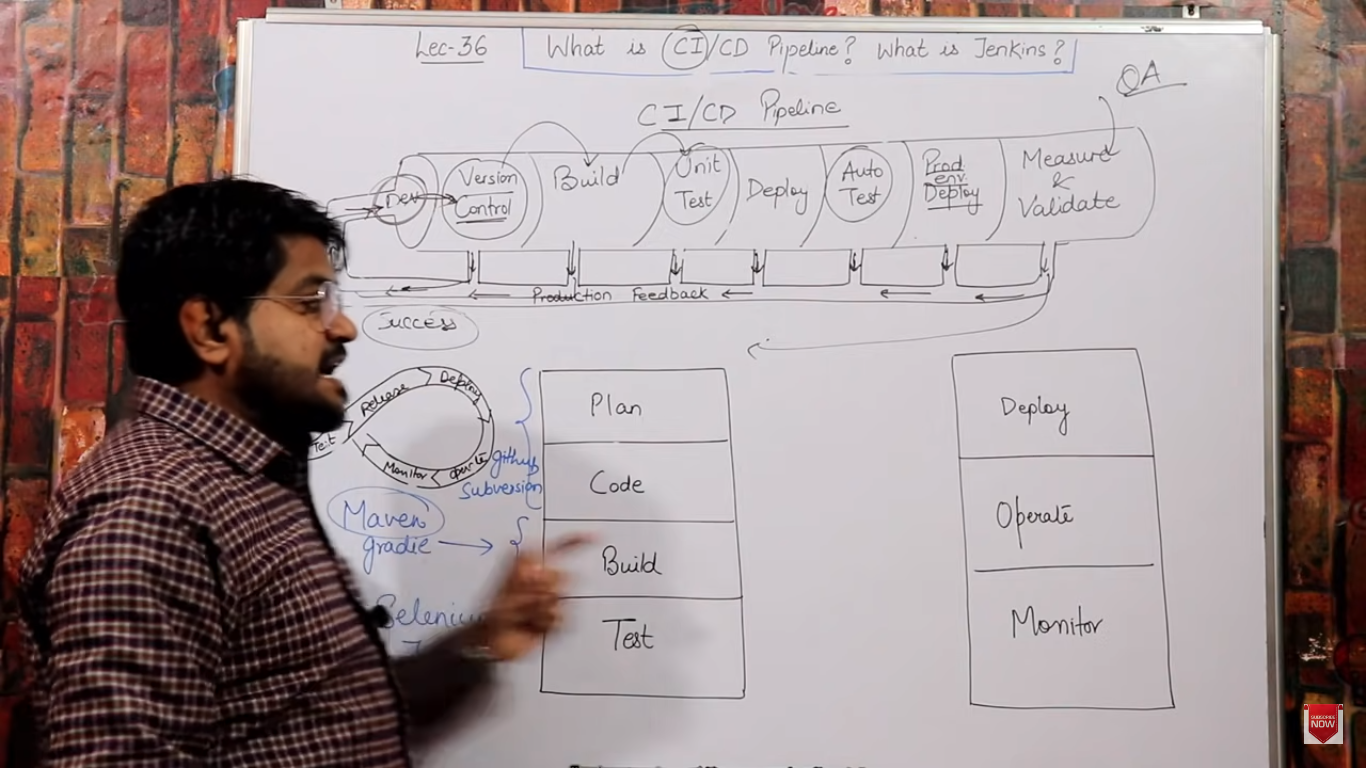 Lec-36 What is CI/CD Pipeline? What is Jenkins?
QA
CI/CD Pipeline
Dev
Version
Control
Build
Unit
Test
Deploy
Auto
Test
Prod
env.
Deploy
Measure
&
Validate
Production Feedback
Success
Test
Release
Deploy
Operate
Monitor
github
subversion
Maven
gradle
Selenium
Plan
Code
Build
Test
Deploy
Operate
Monitor
SUBSCRIBE
NOW